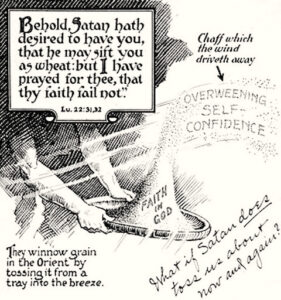 Behold, Satan hath
desired to have you,
that he may sift you
as wheat: but I have
prayed for thee, that
thy faith fail not".
Lu. 22:31,32
Chaff which
the wind
driveth away
OVERWEENING
SELF-
CONFIDENCE
FAITH
IN
GOD
They winnow grain
in the Orient by
tossing it from a
tray into the breeze.
What if Satan does
toss us about
now and again?